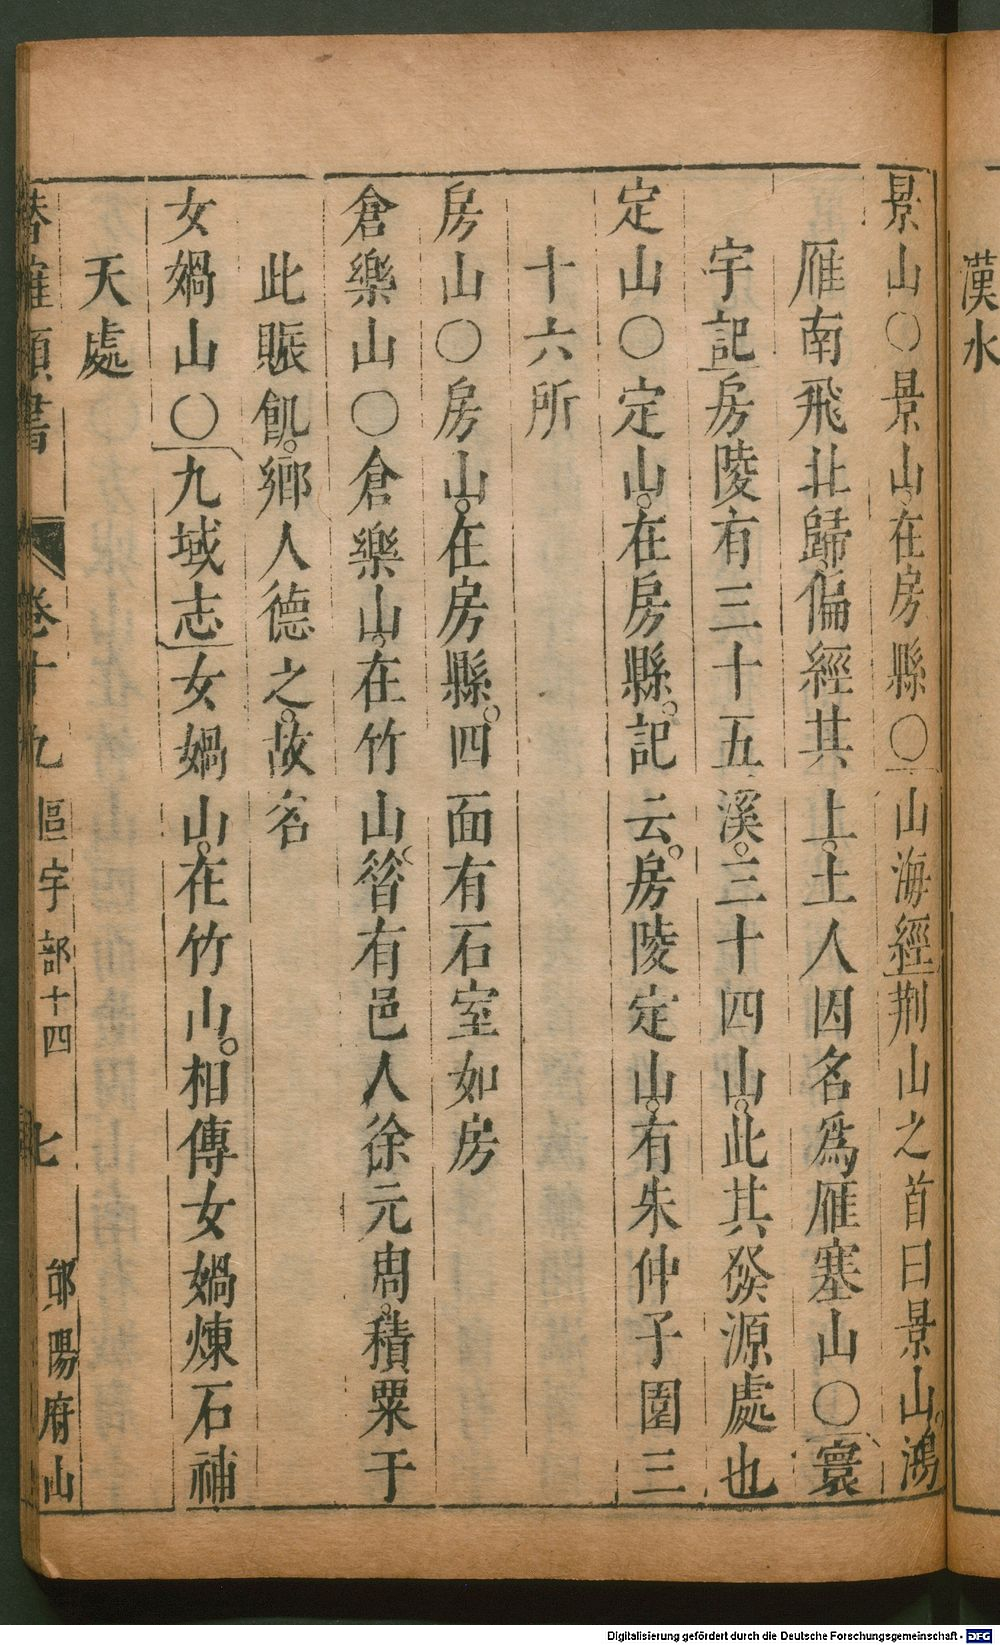 漢水
景山〇景山在房縣〇山海經荆山之首曰景山鴻
雁南飛北歸偏經其上土人因名爲雁塞山〇寰
宇記房陵有三十五溪三十四山此其發源處也
定山〇定山在房縣記云房陵定山有朱仲子園三
十六所
房山〇房山在房縣四面有石室如房
倉樂山〇倉樂山在竹山昝有邑人徐元周積粟于
此賑飢鄉人德之故名
女媧山〇九域志女媧山在竹山相傳女媧煉石補
天處
卷十九 區宇部十四 七 鄖陽府山
Digitalisierung gefördert durch die Deutsche Forschungsgemeinschaft - DFG